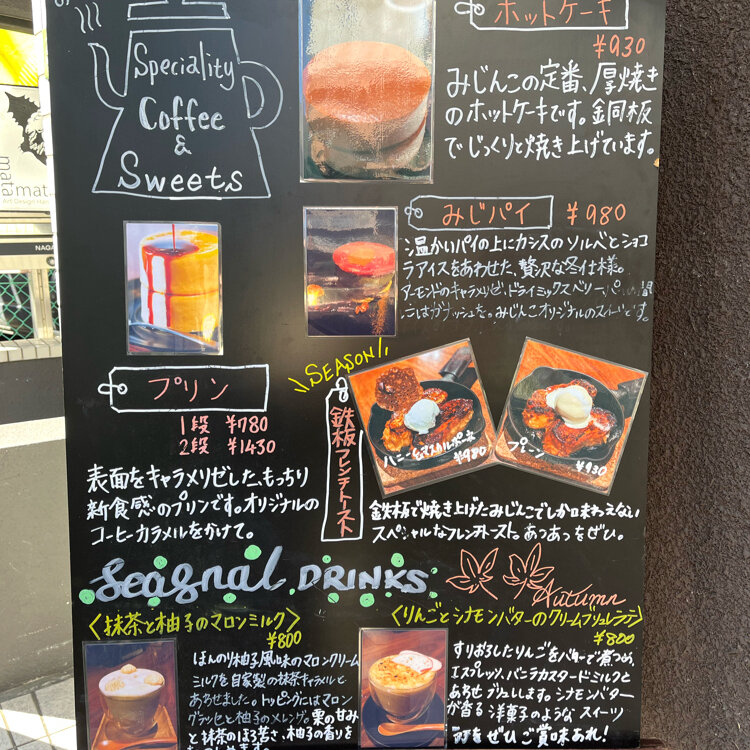 Speciality
Coffee
&
Sweets
ホットケーキ
¥930
みじんこの定番、厚焼き
のホットケーキです。銅板
でじっくりと焼き上げています。
みじパイ ¥980
温かいパイの上にカシスのソルベとショコ
ラアイスをあわせた、贅沢な冬仕様。
アーモンドのキャラメリゼ、ドライミックスベリー、
みじんこオリジナルのスイーツです。
プリン
1段 ¥780
2段 ¥1430
表面をキャラメリゼした、もっちり
新食感のプリンです。オリジナルの
コーヒーカラメルをかけて。
SEASON
鉄板フレンチトースト
ハニー&マスカルポーネ
¥980
プレーン
¥930
鉄板で焼き上げたみじんこでしか味わえない
スペシャルなフレンチトースト。あつあつをぜひ。
Seasnal DRINKS
Autumn
〈抹茶と柚子のマロンミルク〉
¥800
ほんのり柚子風味のマロンクリーム
ミルクを自家製の抹茶キャラメルと
あわせました。トッピングにはマロン
グラッセと柚子のメレンゲ。栗の甘み
と抹茶のほろ苦さ、柚子の香りを
〈りんごとシナモンバターのクリームブリュレラテ〉
¥800
すりおろしたりんごをバターで煮つめ、
エスプレッソ、バニラカスタードミルクと
あわせブリュレします。シナモンバター
が香る洋菓子のようなスイーツ
ラテをぜひご賞味あれ!
mata
mata
Art Design Hair
NAGA